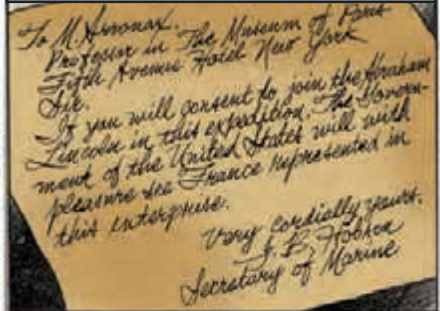 To M. Aronnax.
Professor in The Museum of Paris
Fifth Avenue Hotel New York
Sir.
If you will consent to join the Abraham
Lincoln in this expedition. The Govern-
ment of the United States will with
pleasure see France represented in
this enterprise.
Very cordially yours.
J. B. Hobson
Secretary of Marine